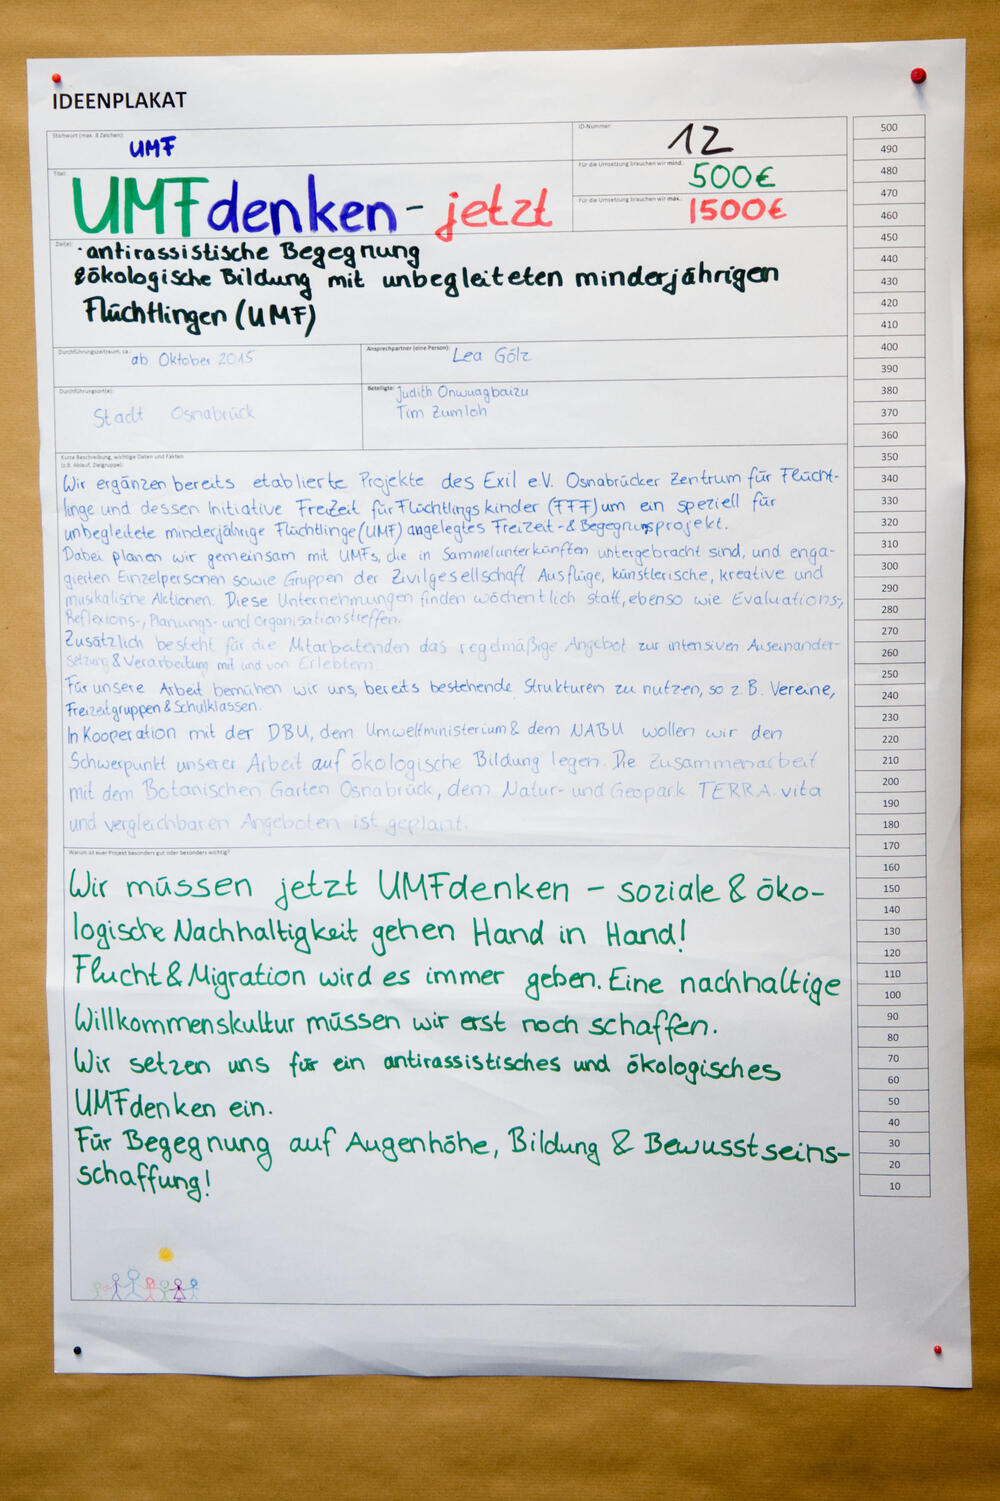 IDEENPLAKAT
Stichwort (max. 8 Zeichen):
UMF
ID-Nummer:
12
Titel:
UMFdenken - jetzt
Für die Umsetzung brauchen wir mind.:
500€
Für die Umsetzung brauchen wir max.:
1500€
Ziel(e):
· antirassistische Begegnung
& ökologische Bildung mit unbegleiteten minderjährigen
Flüchtlingen (UMF)
Durchführungszeitraum, ca.:
ab Oktober 2015
Ansprechpartner (eine Person):
Lea Gölz
Durchführungsort(e):
Stadt Osnabrück
Beteiligte:
Judith Onwuagbaizu
Tim Zumloh
Kurze Beschreibung, wichtige Daten und Fakten
(z.B. Ablauf, Zielgruppe):
Wir ergänzen bereits etablierte Projekte des Exil e.V. Osnabrücker Zentrum für Flücht-
linge und dessen Initiative Freizeit für Flüchtlingskinder (FFF) um ein speziell für
unbegleitete minderjährige Flüchtlinge (UMF) angelegtes Freizeit- & Begegnungsprojekt.
Dabei planen wir gemeinsam mit UMFs, die in Sammelunterkünften untergebracht sind, und enga-
gierten Einzelpersonen sowie Gruppen der Zivilgesellschaft Ausflüge, künstlerische, kreative und
musikalische Aktionen. Diese Unternehmungen finden wöchentlich statt, ebenso wie Evaluations-,
Reflexions-, Planungs- und Organisationstreffen.
Zusätzlich besteht für die Mitarbeitenden das regelmäßige Angebot zur intensiven Auseinander-
setzung & Verarbeitung mit und von Erlebtem.
Für unsere Arbeit bemühen wir uns, bereits bestehende Strukturen zu nutzen, so z.B. Vereine,
Freizeitgruppen & Schulklassen.
In Kooperation mit der DBU, dem Umweltministerium & dem NABU wollen wir den
Schwerpunkt unserer Arbeit auf ökologische Bildung legen. Die Zusammenarbeit
mit dem Botanischen Garten Osnabrück, dem Natur- und Geopark TERRA.vita
und vergleichbaren Angeboten ist geplant.
Warum ist euer Projekt besonders gut oder besonders wichtig?
Wir müssen jetzt UMFdenken - soziale & öko-
logische Nachhaltigkeit gehen Hand in Hand!
Flucht & Migration wird es immer geben. Eine nachhaltige
Willkommenskultur müssen wir erst noch schaffen.
Wir setzen uns für ein antirassistisches und ökologisches
UMFdenken ein.
Für Begegnung auf Augenhöhe, Bildung & Bewusstseins-
schaffung!
500
490
480
470
460
450
440
430
420
410
400
390
380
370
360
350
340
330
320
310
300
290
280
270
260
250
240
230
220
210
200
190
180
170
160
150
140
130
120
110
100
90
80
70
60
50
40
30
20
10